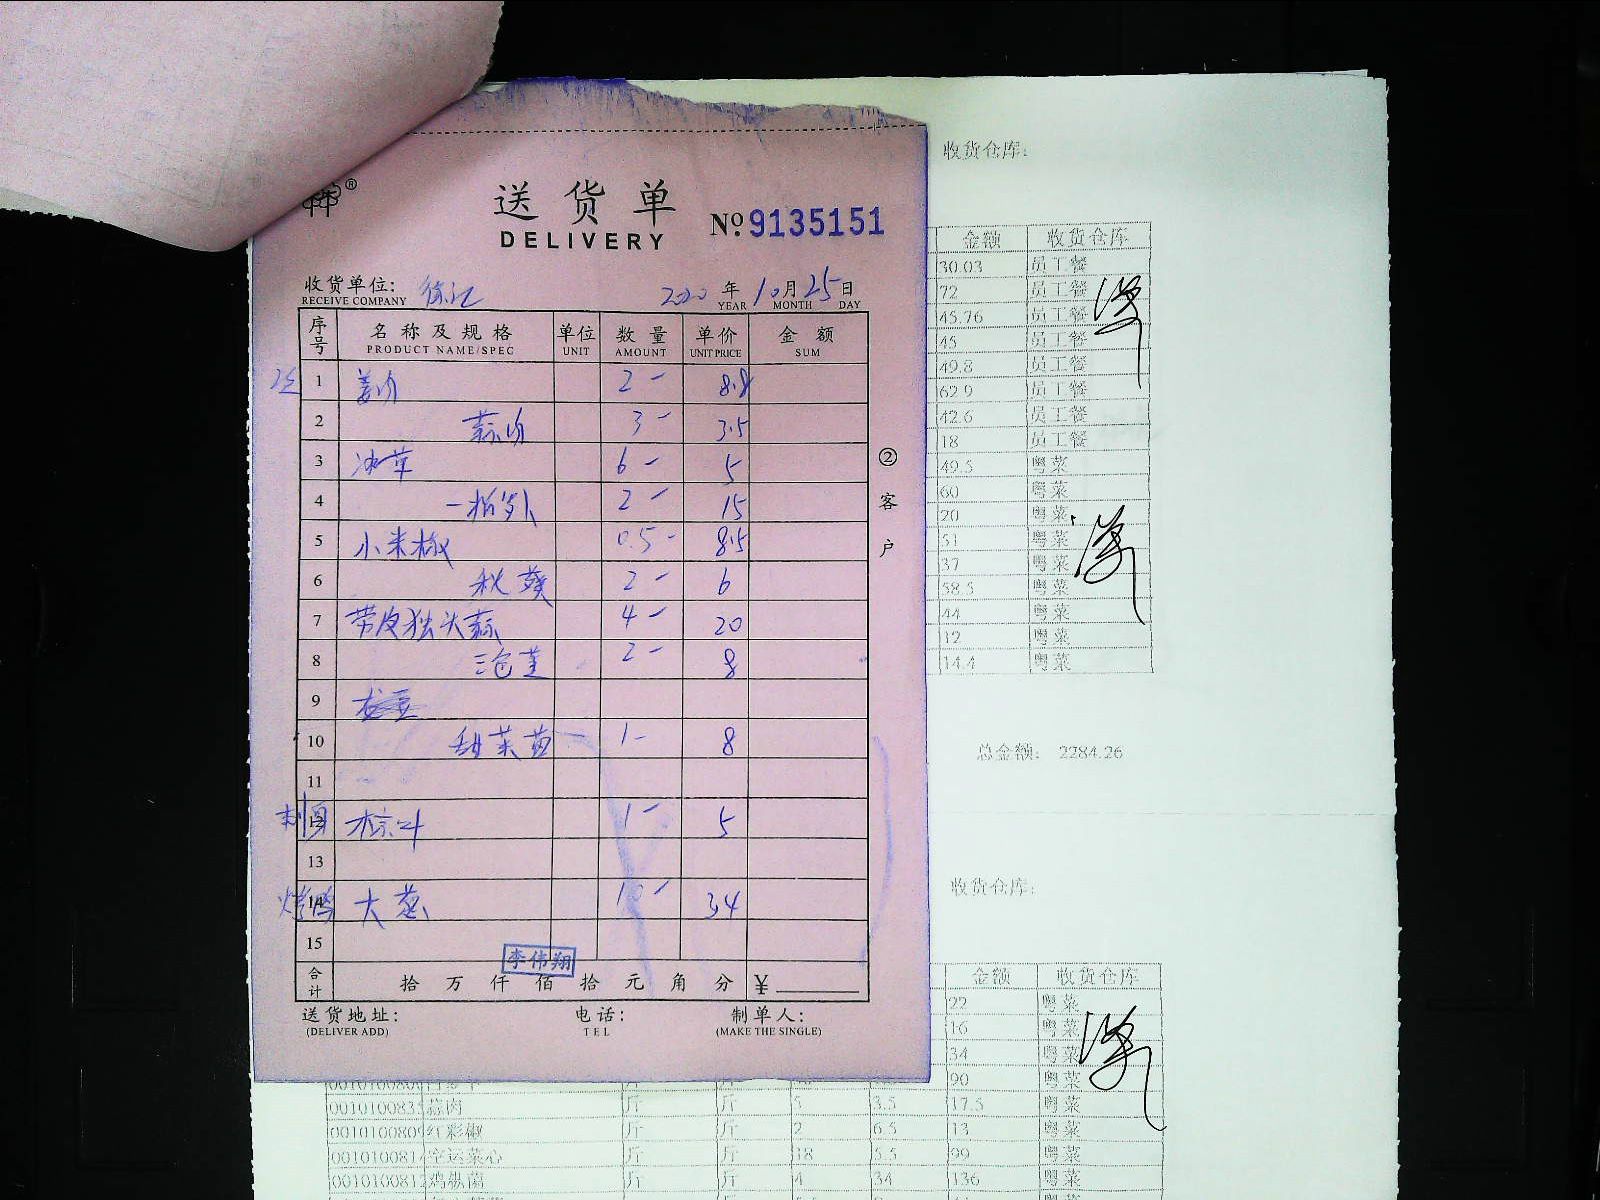 收货仓库:
送货单
DELIVERY
№ 9135151
收货单位:
RECEIVE COMPANY
2020 年 10 月 25 日
YEAR MONTH DAY
序号 名称及规格 单位 数量 单价 金额
PRODUCT NAME/SPEC UNIT AMOUNT UNIT PRICE SUM
1 姜肉 2- 8.8
2 蒜肉 3- 3.5
3 冰草 6- 5
4 2- 15
5 小米椒 0.5- 8.5
6 秋葵 2- 6
7 带皮独头蒜 4- 20
8 2- 8
9
10 甜菜苗 1- 8
11
刺身 12 棕叶 1- 5
13
烤鸭 14 大葱 10- 34
15
李伟翔
合计 拾 万 仟 佰 拾 元 角 分 ¥
送货地址: 电话: 制单人:
(DELIVER ADD) TEL (MAKE THE SINGLE)
②客户
金额 收货仓库
30.03 员工餐
72 员工餐
45.76 员工餐
45 员工餐
49.8 员工餐
62.9 员工餐
42.6 员工餐
18 员工餐
49.5 粤菜
60 粤菜
20 粤菜
51 粤菜
37 粤菜
58.5 粤菜
44 粤菜
12 粤菜
14.4 粤菜
总金额: 2284.26
收货仓库:
金额 收货仓库
22 粤菜
16 粤菜
34 粤菜
90 粤菜
蒜肉 斤 斤 5 3.5 17.5 粤菜
红彩椒 斤 斤 2 6.5 13 粤菜
空运菜心 斤 斤 18 5.5 99 粤菜
鸡枞菌 斤 斤 4 34 136 粤菜